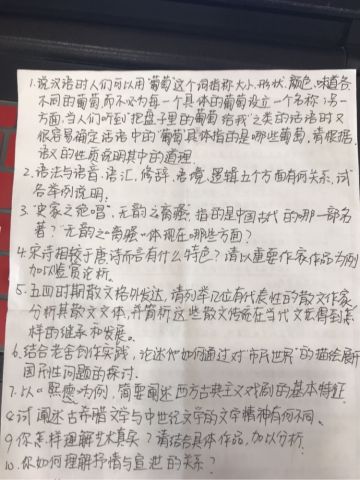 1.说汉语时人们可以用"葡萄"这个词指称大小、形状、颜色、味道各
不同的葡萄,而不必为每一个具体的葡萄设立一个名称;另一
方面,当人们听到"把盘子里的葡萄给我"之类的话语时又
很容易确定话语中的"葡萄"具体指的是哪些葡萄,请根据
语义的性质说明其中的道理.
2.语法与语音、语汇、修辞、语境、逻辑五个方面有何关系,试
各举例说明.
3."史家之绝唱,无韵之离骚"指的是中国古代的哪一部名
著?"无韵之离骚"体现在哪些方面?
4.宋诗相较于唐诗而言有什么特色?请以重要作家作品为例
加以鉴赏论析.
5.五四时期散文格外发达,请列举几位有代表性的散文作家,
分析其散文文体,并简析这些散文传统在当代文坛得到怎
样的继承和发展。
6.结合老舍创作实践,论述他如何通过对"市民世界"的描绘展开
国民性问题的探讨.
7.以《熙德》为例,简要阐述西方古典主义戏剧的基本特征.
8.试阐述古希腊文学与中世纪文学的文学精神有何不同.
9.你怎样理解艺术真实?请结合具体作品,加以分析.
10.你如何理解抒情与宣泄的关系?